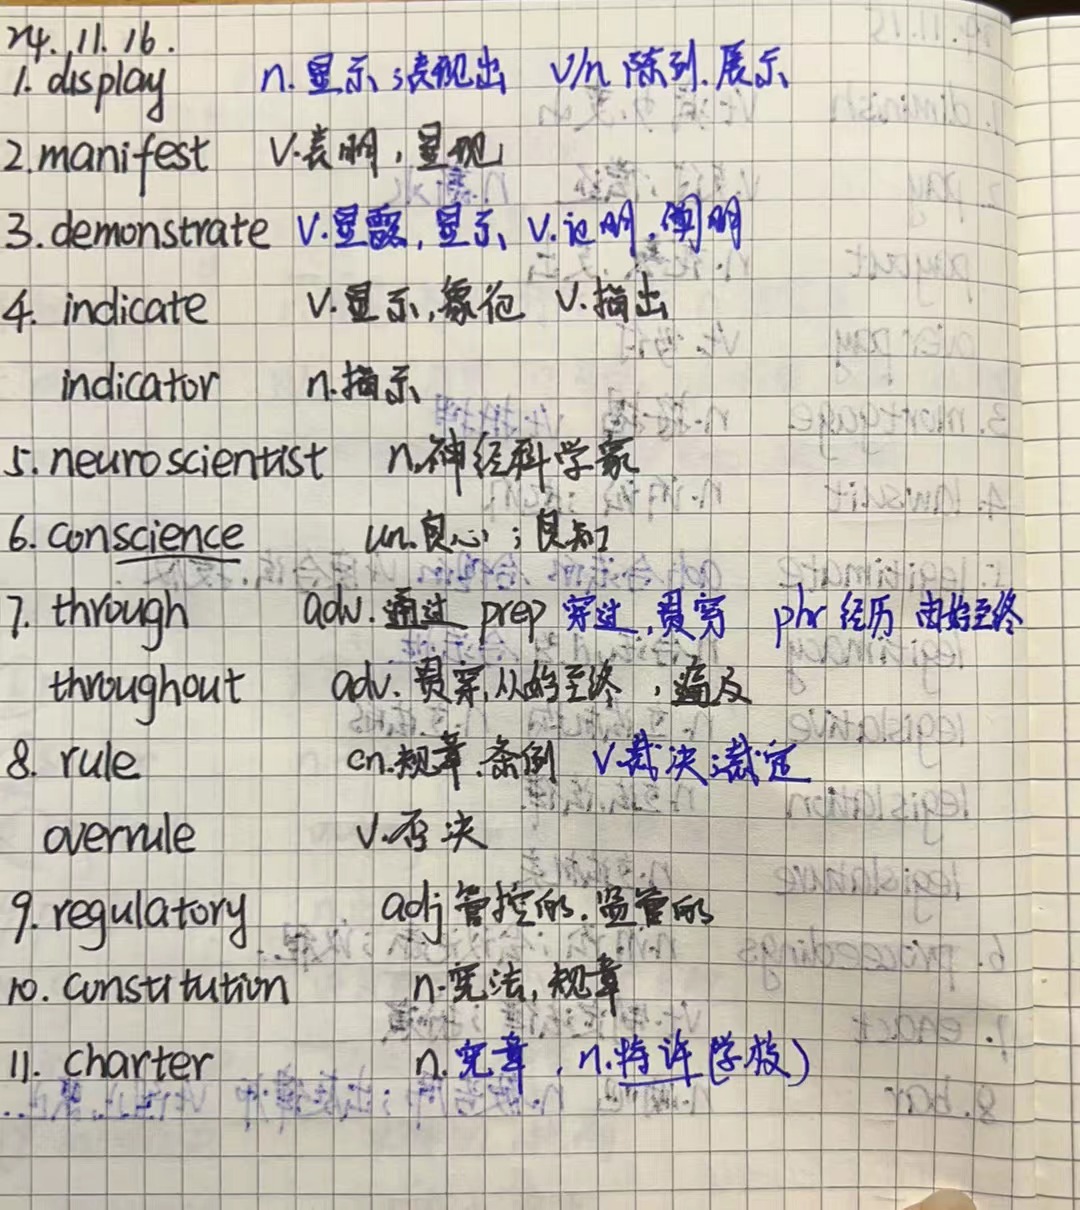 24.11.16.
1. display n.显示;表现出 v/n.陈列.展示
2. manifest v.表明,显现
3. demonstrate v.显露,显示 v.证明.阐明
4. indicate v.显示,象征 v.指出
indicator n.指示
5. neuroscientist n.神经科学家
6. conscience un.良心;良知
7. through adv.通过 prep 穿过,贯穿 phr 经历 由始至终
throughout adv.贯穿,从始至终,遍及
8. rule cn.规章.条例 v.裁决;裁定
overrule v.否决
9. regulatory adj 管控的.监管的
10. constitution n.宪法,规章
11. charter n.宪章,n.特许(学校)